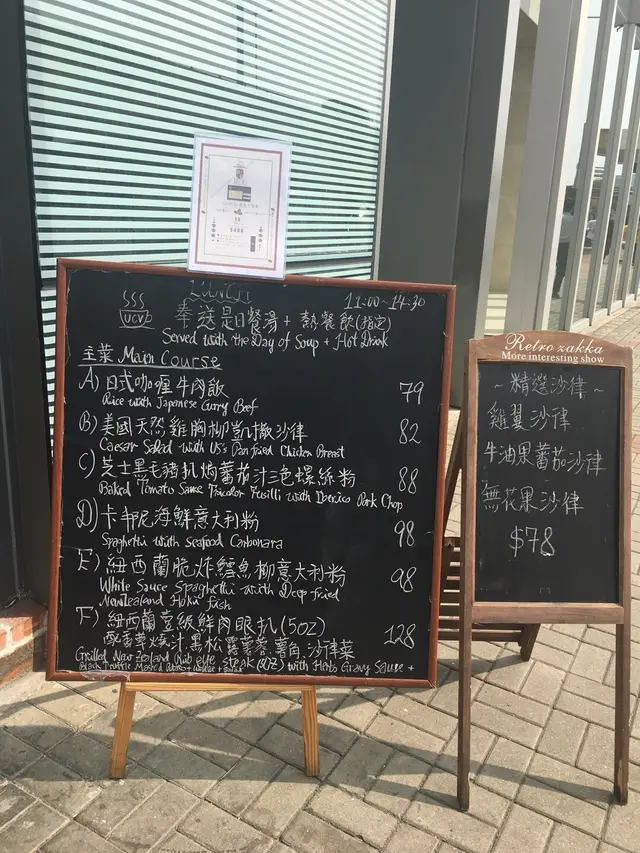 LUNCH 11:00~14:30
UCVB
奉送是日餐湯+熱餐飲(指定)
Served with the Day of Soup + Hot Drink
主菜 Main Course
A) 日式咖喱牛肉飯 79
Rice with Japanese Curry Beef
B) 美國天然雞胸柳凱撒沙律 82
Caesar Salad with US's Pan fried Chicken Breast
C) 芝士黑毛豬扒焗蕃茄汁三色螺絲粉 88
Baked Tomato Sauce Tricolor Fusilli with Iberico Pork Chop
D) 卡邦尼海鮮意大利粉 98
Spaghetti with seafood Carbonara
E) 紐西蘭脆炸鱈魚柳意大利粉 98
White Sauce Spaghetti with Deep fried
New Zealand Hoki fish
F) 紐西蘭宮級鮮肉眼扒(5OZ) 128
配香草燒汁,黑松露薯蓉,薯角,沙律菜
Grilled New Zealand Rib eye steak (5OZ) with Herb Gravy Sauce +
Black Truffle Mash'd Potato +
Retro zakka
More interesting show
~精選沙律~
雞翼沙律
牛油果蕃茄沙律
無花果沙律
$78